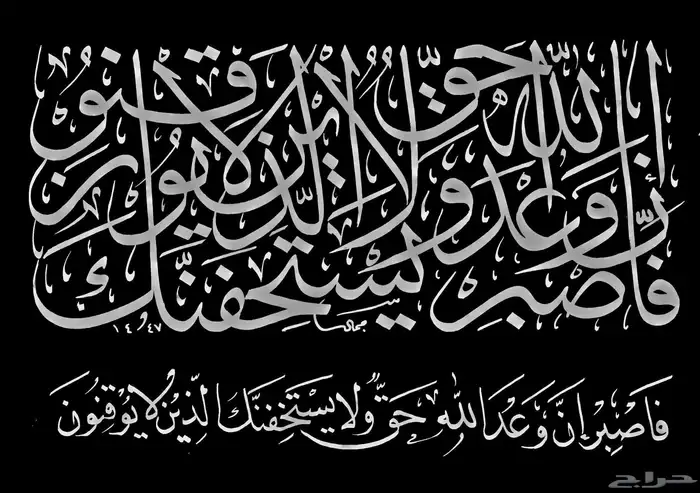 فاصبر إن وعد الله حق ولا يستخفنك الذين لا يوقنون
فَاصْبِرْ إِنَّ وَعْدَ اللهِ حَقٌّ وَلَا يَسْتَخِفَّنَّكَ الَّذِينَ لَا يُوقِنُونَ
حراج